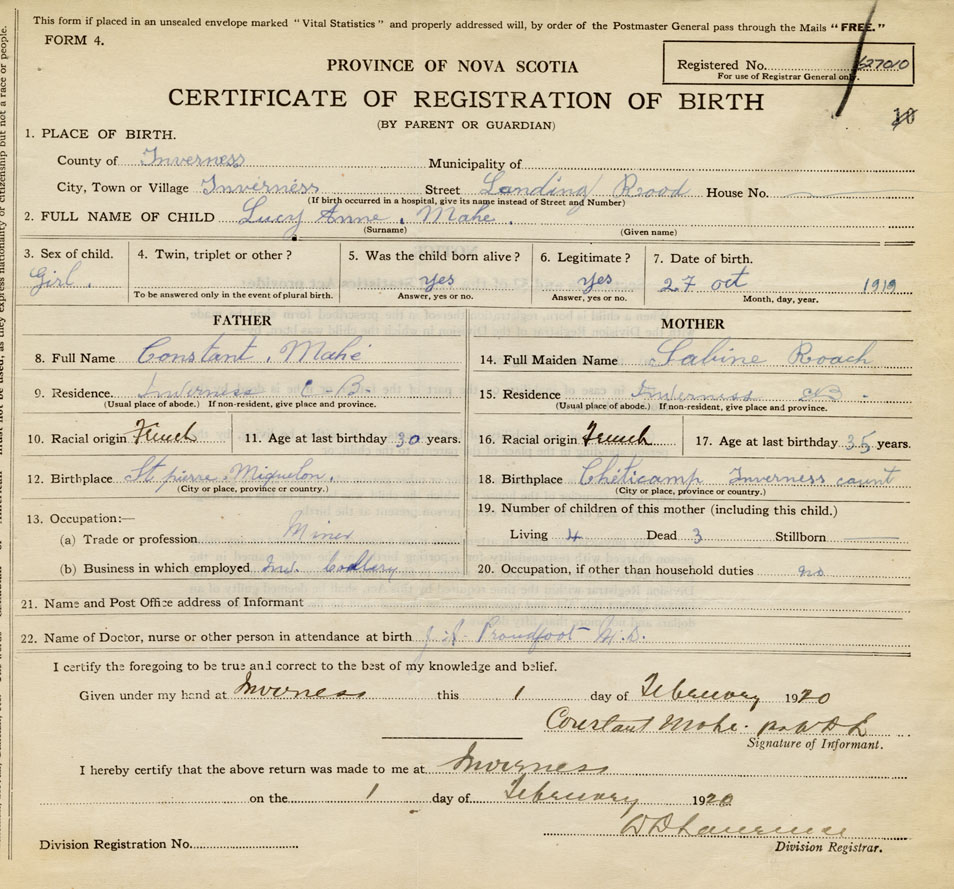 This form if placed in an unsealed envelope marked "Vital Statistics" and properly addressed will, by order of the Postmaster General pass through the Mails "FREE."
FORM 4.
Registered No. 627010
For use of Registrar General only.
PROVINCE OF NOVA SCOTIA
CERTIFICATE OF REGISTRATION OF BIRTH
(BY PARENT OR GUARDIAN)
10
1. PLACE OF BIRTH.
County of Inverness Municipality of
City, Town or Village Inverness Street Landing Rood House No.
(If birth occurred in a hospital, give its name instead of Street and Number)
2. FULL NAME OF CHILD Lucy Anne. Mahe.
(Surname) (Given name)
3. Sex of child. 4. Twin, triplet or other? 5. Was the child born alive? 6. Legitimate? 7. Date of birth.
Girl. yes yes 27 oct 1919
To be answered only in the event of plural birth. Answer, yes or no. Answer, yes or no. Month, day, year.
FATHER MOTHER
8. Full Name Constant. Mahé 14. Full Maiden Name Sabine Roach
9. Residence. Inverness C B. 15. Residence Inverness CB.
(Usual place of abode.) If non-resident, give place and province. (Usual place of abode.) If non-resident, give place and province.
10. Racial origin French 11. Age at last birthday 30 years. 16. Racial origin French 17. Age at last birthday 35 years.
12. Birthplace St pierre. Miquelon. 18. Birthplace Chéticamp Inverness count
(City or place, province or country.) (City or place, province or country.)
13. Occupation:— 19. Number of children of this mother (including this child.)
(a) Trade or profession Miner Living 4 Dead 3 Stillborn
(b) Business in which employed Inv. Colliery 20. Occupation, if other than household duties no
21. Name and Post Office address of Informant
22. Name of Doctor, nurse or other person in attendance at birth J. A. Proudfoot M.D.
I certify the foregoing to be true and correct to the best of my knowledge and belief.
Given under my hand at Inverness this 1 day of February 1920
Constant Mahe.
Signature of Informant.
I hereby certify that the above return was made to me at Inverness
on the 1 day of February 1920
Division Registration No. Division Registrar.